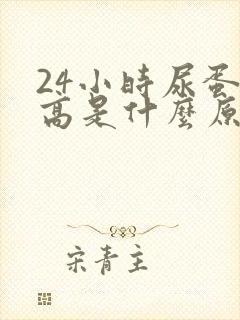 24小時尿蛋
高是什麼原
宋青主